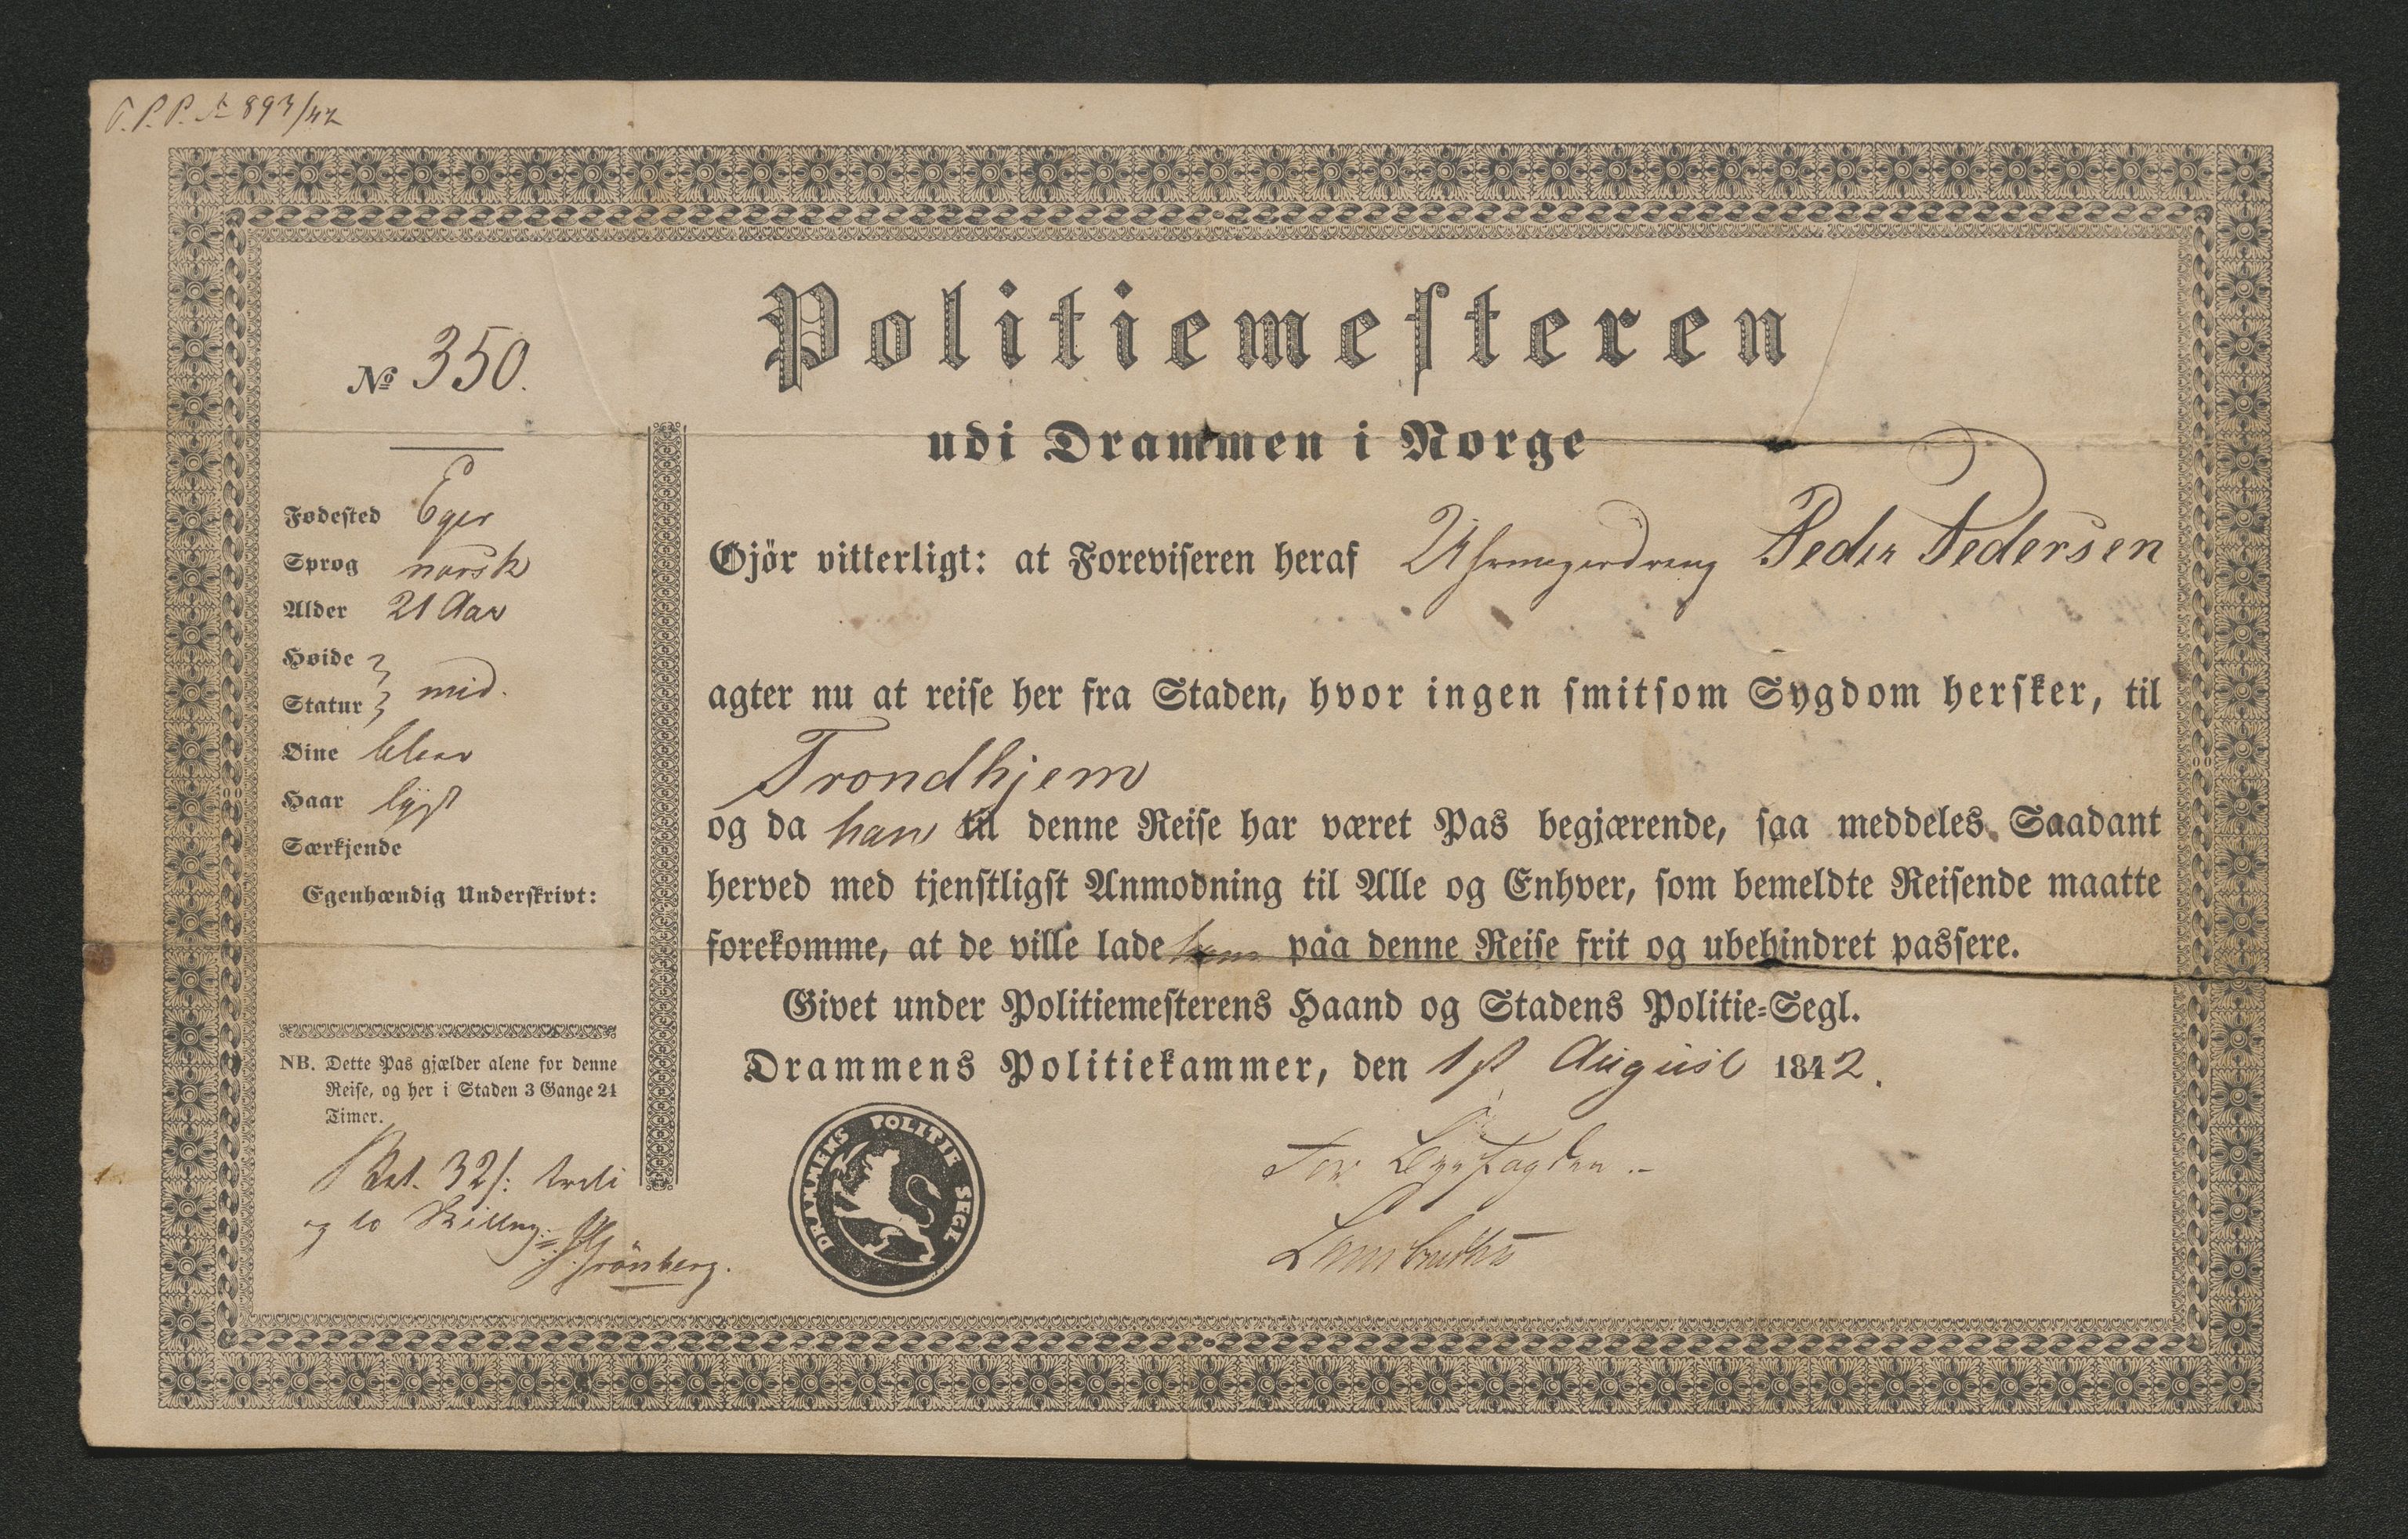 T.P.P. № 893/42
№ 350.
Politiemesteren
udi Drammen i Norge
Fødested Eger
Sprog norsk
Alder 21 Aar
Høide
Statur mid.
Øine blaa
Haar lyst
Særkjende
Egenhændig Underskrivt:
NB. Dette Pas gjælder alene for denne
Reise, og her i Staden 3 Gange 24
Timer.
Bet. 32 s: treti
og to Skilling.
Grönberg.
Gjör vitterligt: at Foreviseren heraf Uhrmagerdreng Peder Pedersen
agter nu at reise her fra Staden, hvor ingen smitsom Sygdom hersker, til
Trondhjem
og da han til denne Reise har været Pas begjærende, saa meddeles Saadant
herved med tjenstligst Anmodning til Alle og Enhver, som bemeldte Reisende maatte
forekomme, at de ville lade ham paa denne Reise frit og ubehindret passere.
Givet under Politiemesterens Haand og Stadens Politie=Segl.
Drammens Politiekammer, den 1st August 1842.
DRAMMENS POLITIE SEGL
For Byefogden